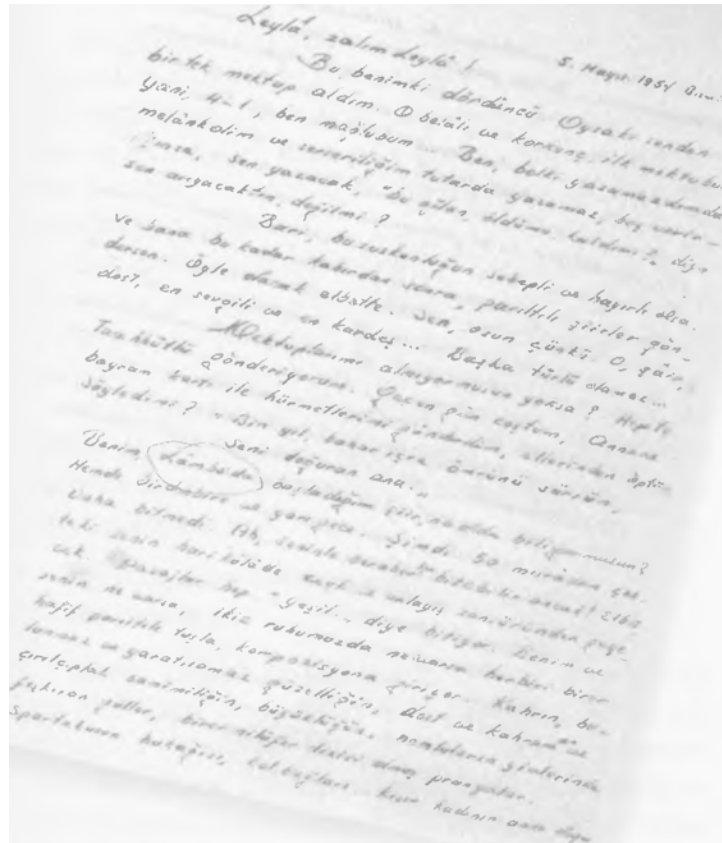 Leylâ, zalim Leylâ!
5. Mayıs 1954
Bu, benimki dördüncü. Oysaki senden
bir tek mektup aldım. O belâlı ve korkunç ile mektubu
Yani, 4-1, ben mağlubum... Ben, belki yazamazdım da
melânkolim ve serseriliğim tutar da yazamaz, boş verir-
imse, sen yazacak, "bu oğlan öldümü kaldımı?" diye
sen arıyacaktın, değilmi?
Bari, bu suskunluğun sebepli ve hayırlı olsa.
ve bana bu kadar kahırdan sonra, parıltılı şiirler gön-
dersen. Öyle olacak elbette. Sen, osun çünkü. O, şâir,
dost, en sevgili ve en kardeş... Başka türlü olamaz...
Mektuplarımı almıyormusun yoksa? Hepsi
Taahhütlü gönderiyorum. Geçen gün coştum, Annene
bayram kartı ile hürmetlerimi gönderdim, ellerinden öptüm
Söyledimi? "Bin yıl, bahar içre ömrünü sürsün,
Seni doğuran ana."
Benim, Lâmbada başladığım şiir, noldu biliyormusun?
Hemde birdenbire ve gece. Şimdi 50 mısradan çok.
Daha bitmedi. Ah, seninle beraber
teki senin harikulâde zevk ve anlayış
cek. Pasajlar hep "Yeşil.." diye bitiyor. Benim ve
senin ne varsa, ikiz ruhumuzda ne varsa herbiri birer
hafif parıltılı tuşla, kompozisyona giriyor. Kahrın, bu-
lunmaz ve yaratılamaz güzelliğin, dost ve kahraman ve
çırılçıplak samimiliğin, büyüklüğün, namluların
fışkıran güller, birer nilüfer dizisi olmuş prangalar.
Spartaküsün bukağısı, kol bağları.